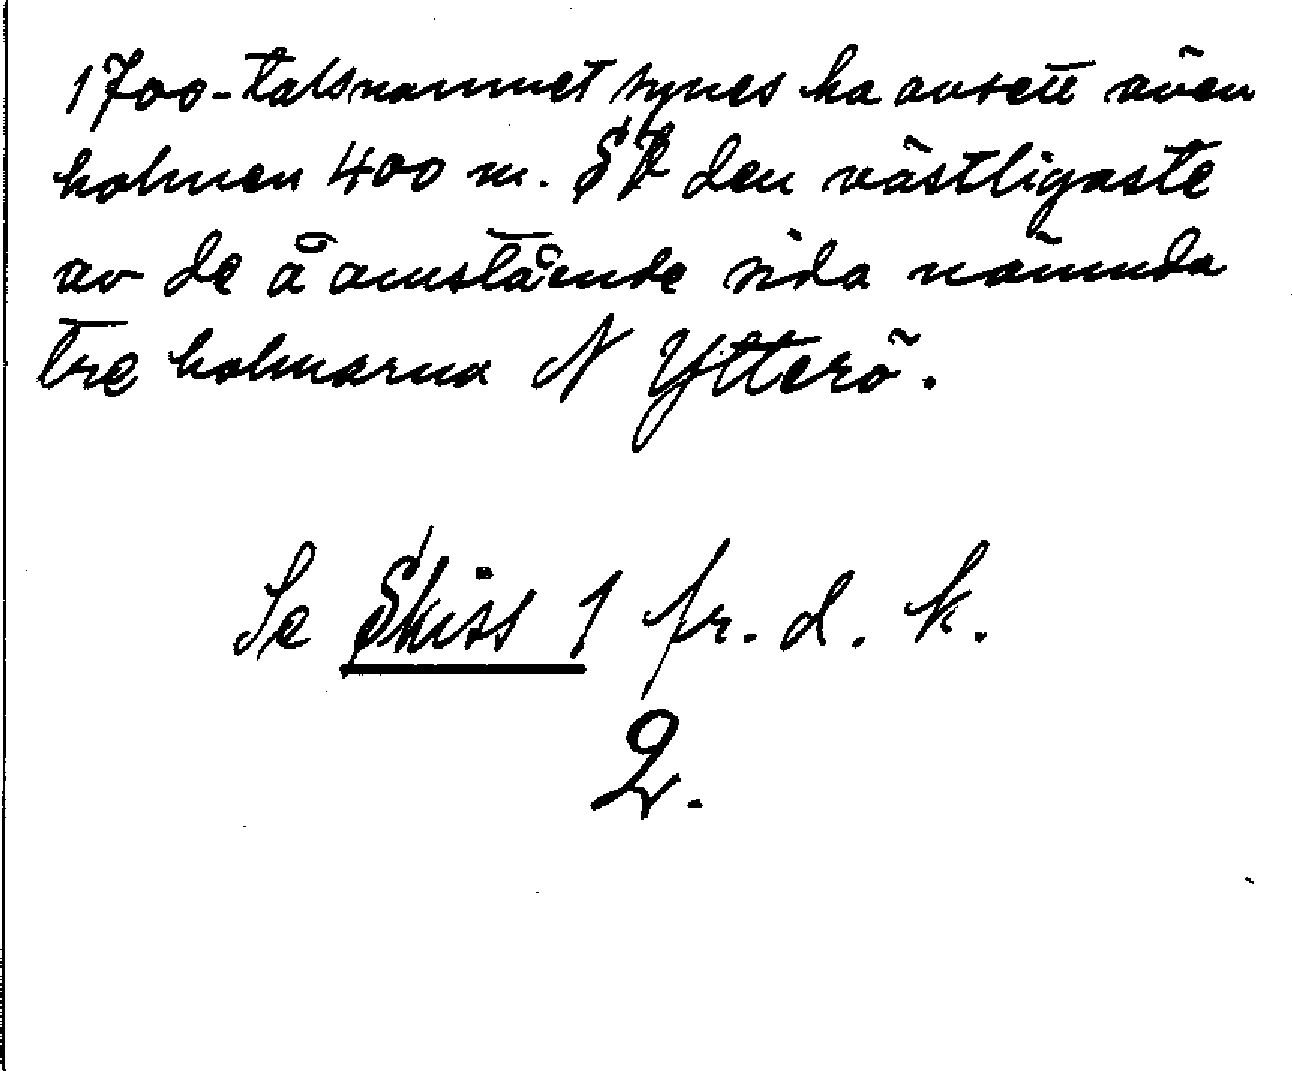 1700-talsnamnet synes ha avsett även
holmen 400 m. SV den västligaste
av de å omstående sida nämnda
tre holmarna N Ytterö.
Se Skiss 1 fr. d. k.
2.